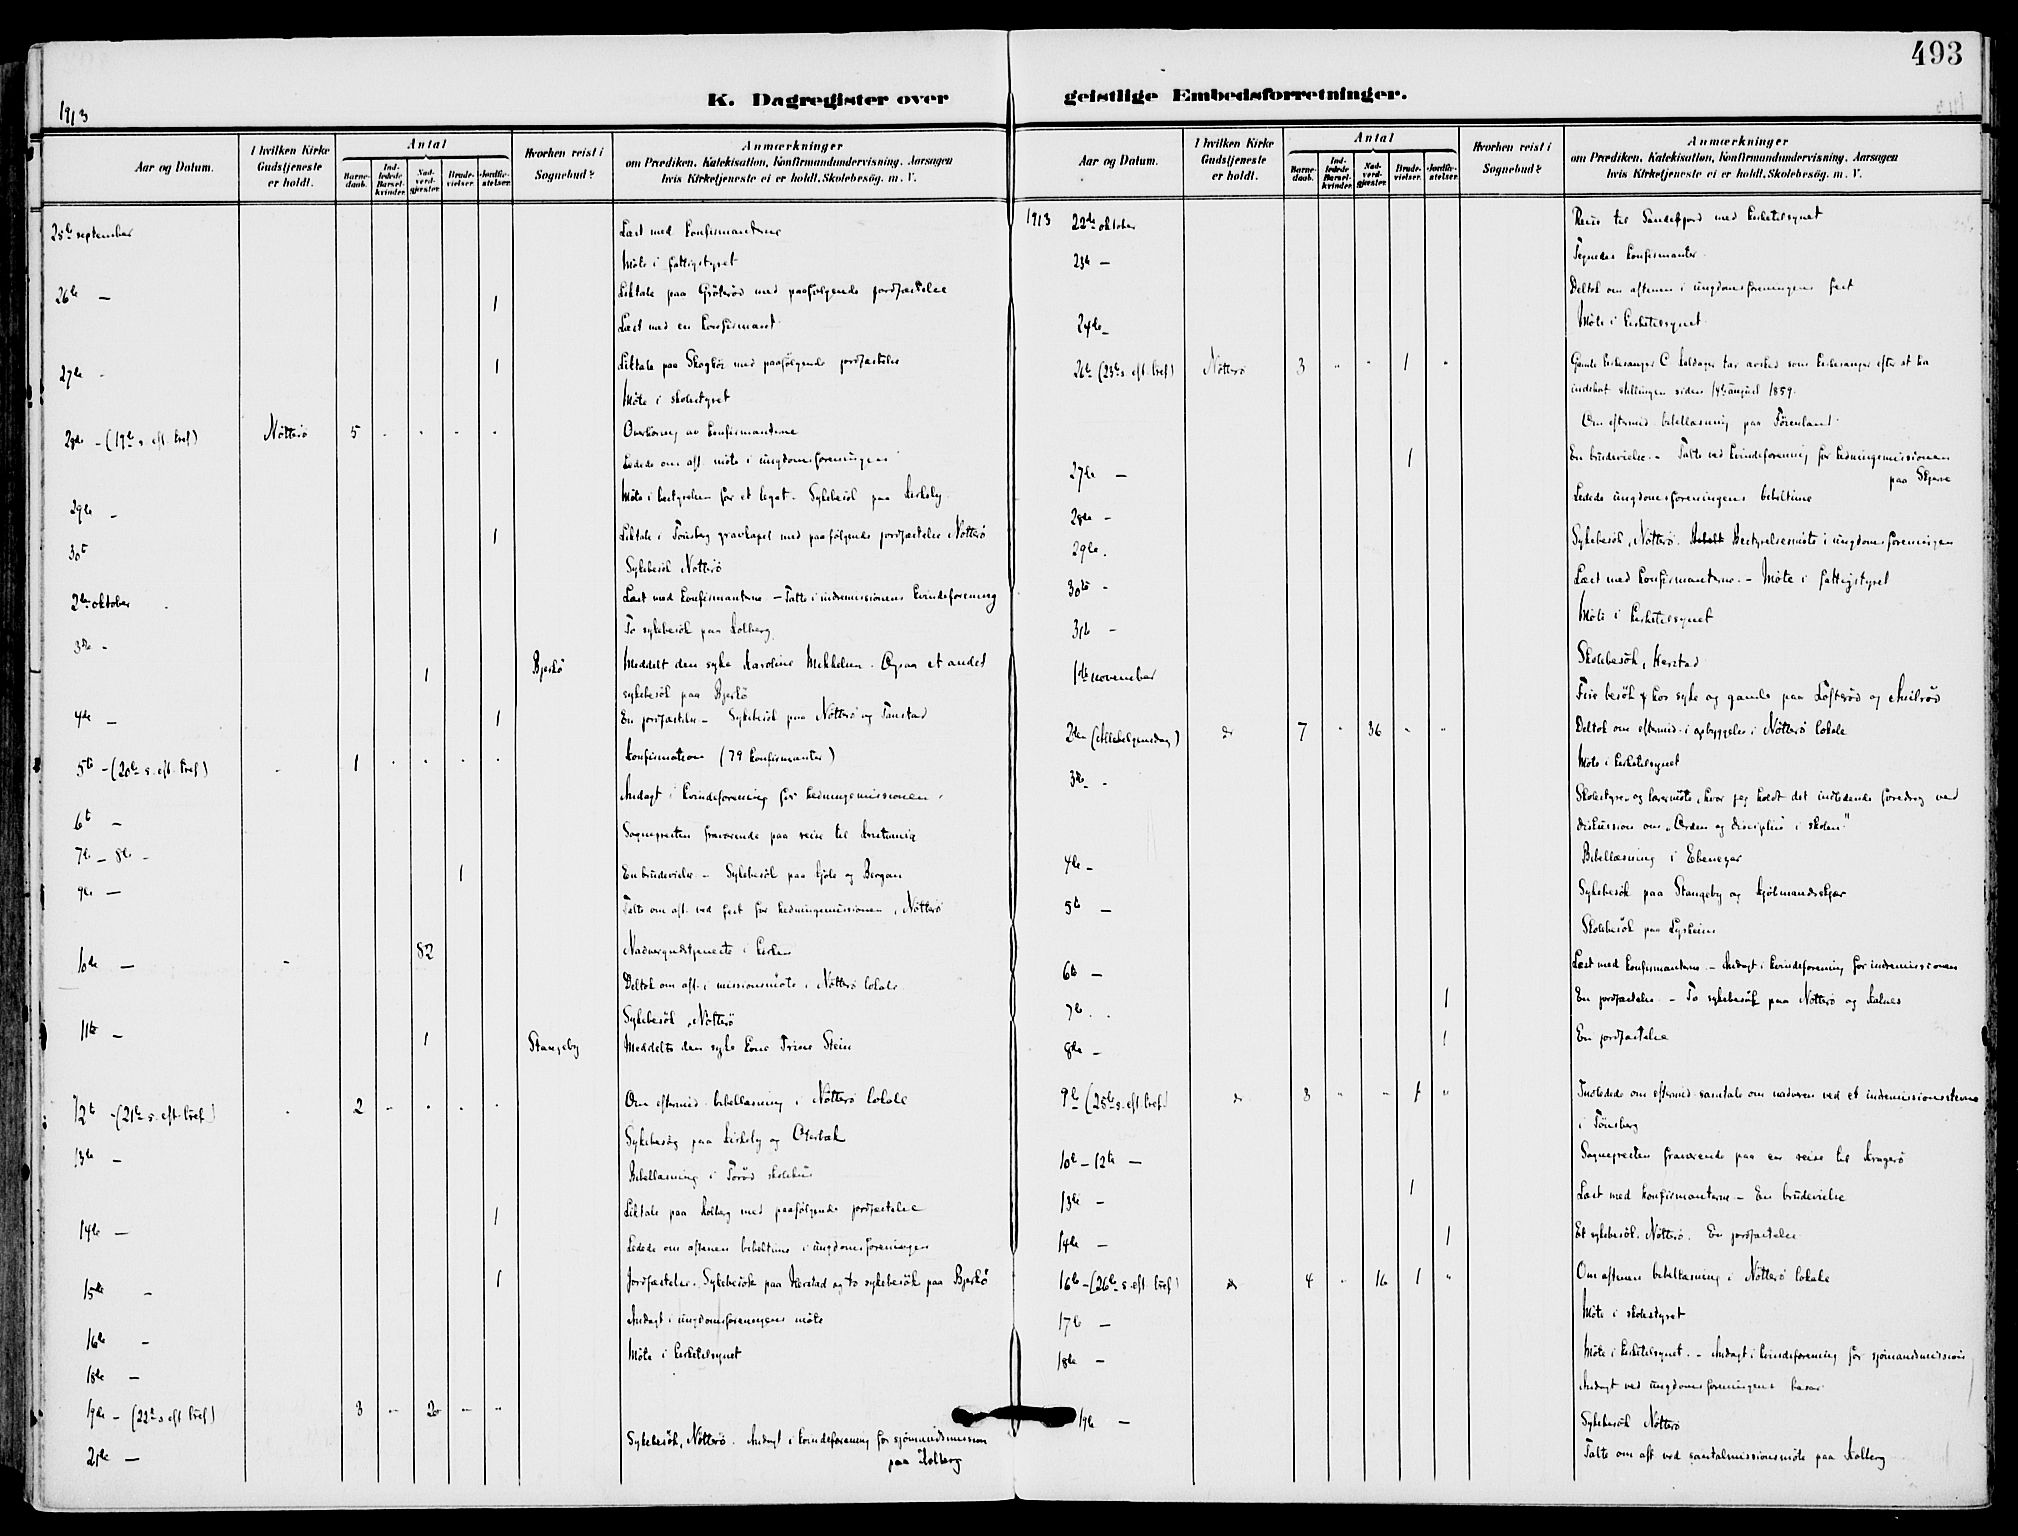 493
K. Dagregister over geistlige Embedsforretninger.
1913
Aar og Datum.
I hvilken Kirke Gudstjeneste er holdt.
Antal
Barnedaab.
Indledede Barselkvinder.
Nadverdgjester.
Brudevielser.
Jordfæstelser.
Hvorhen reist i Sognebud?
Anmærkninger
om Prædiken, Katekisation, Konfirmandundervisning, Aarsagen
hvis Kirketjeneste ei er holdt, Skolebesøg. m. V.
25de september Læst med konfirmanterne
Møte i fattigstyret
26de — 1 Liktale paa Grøterød med paafølgende jordfæstelse
Læst med en konfirmant
27de - 1 Liktale paa Skogkör med paafølgende jordfæstelse
Møte i skolestyret
28de - (19de s. eft. tref) Nötterö 5 - - - - Overhøring av konfirmanterne
Ledede om aft. møte i ungdomsforeningen
29de - Møte i bestyrelsen for et legat. Sykebesök paa Kirkeby
30te 1 Liktale i Tönsberg gravkapel med paafølgende jordfæstelse Nötterö
Sykebesök Nötterö
2den oktober Læst med konfirmanterne - Talte i indremissionens kvindeforening
To sykebesök paa Kolberg
3die - 1 Bjerkö Meddelt den syke Karoline Mikkelsen. Ogsaa et andet
sykebesök paa Bjerkö
4de — 1 En jordfæstelse - Sykebesök paa Nötterö og Tanstad
5te - (20de s. eft. tref) - 1 - - - - Konfirmation (79 konfirmanter)
Andagt i kvindeforening for hedningemissionen
6te —
7de - 8de - Sognepresten fraværende paa reise til Kristiania
9de — 1 En brudevielse - Sykebesök paa Hjole og Bergan
Talte om aft. ved fest for hedningemissionen, Nötterö
10de — - 82 Nadvergudstjeneste i kirken
Deltok om aft. i missionsmøte i Nötterö lokale
Sykebesök, Nötterö
11te - 1 Stangeby Meddelt den syke kone Trine Stein
12te - (21de s. eft. tref.) - 2 - - - - Om eftermid. bibellæsning i Nötterö lokale
13de — Sykebesøg paa Kirkeby og Oterbæk
Bibellæsning i Torød skolehus
14de — 1 Liktale paa Kolberg med paafølgende jordfæstelse
Ledede om aftenen bibeltime i ungdomsforeningen
15de - 1 Jordfæstelse. Sykebesök paa Herstad og to sykebesök paa Bjerkö
16de - Andagt i ungdomsforeningens møte
18de — Møte i kirketilsynet
19de - (22de s. eft. tref) 3 - 20 - -
21de — Sykebesök, Nötterö. Andagt i kvindeforening for sjømandsmission
paa Kolberg
1913 22de oktober Reise til Sandefjord med kirketilsynet
23de — Tegnedes konfirmanter
Deltok om aftenen i ungdomsforeningens fest
24de - Møte i kirketilsynet
26de (23de s. eft. tref) Nötterö 3 - - 1 - Gamle kirkesanger C. Holdager tar avsked som kirkesanger efter at ha
indehat stillingen siden 14de august 1859.
Om eftermid. bibellæsning paa Föenland
27de — 1 En brudevielse - Talte ved kvindeforening for hedningemissionen
paa Skjerve
28de - Ledede ungdomsforeningens bibeltime
29de. Sykebesök, Nötterö. Bestyrelsesmøte i ungdomsforeningen
30te - Læst med konfirmanterne. - Møte i fattigstyret
31te - Møte i kirketilsynet
1ste november Skolebesök, Herstad
Fire besök hos syke og gamle paa Tofterød og Snilröd
2den (Allehelgensdag) do 7 - 36 - - Deltok om eftermid. i opbyggelse i Nötterö lokale
3die - Møte i kirketilsynet
Skolestyre- og lærermøte, hvor jeg holdt det indledende foredrag ved
diskussion om „Orden og disciplin i skolen"
4de - Bibellæsning i Ebenezer
5te — Sykebesök paa Stangeby og Hjølmandsskjær
Skolebesök paa Lysheim
6te — Læst med konfirmanterne - Andagt i kvindeforening for indremissionen
7de - 1 En jordfæstelse - To sykebesök paa Nötterö og Kalnes
8de - 1 En jordfæstelse
9de (25de s. eft. tref.) do 3 - - 1 - Indledede om eftermid. samtale om nadveren ved et indremissionsstevne
i Tönsberg
10de - 12te — Sognepresten fraværende paa en reise til Kragerö
13de - 1 Læst med konfirmanterne - En brudevielse
14de — 1 Et sykebesök, Nötterö. En jordfæstelse
16de - (26de s. eft. tref) do 4 - 16 1 - Om aftenen bibellæsning i Nötterö lokale
17de — Møte i skolestyret
18de — Møte i kirketilsynet. - Andagt i kvindeforening for sjømandsmission
Andagt ved ungdomsforeningens basar
19de — Sykebesök Nötterö
Talte om aft. ved santalmissionsmøte paa Kolberg